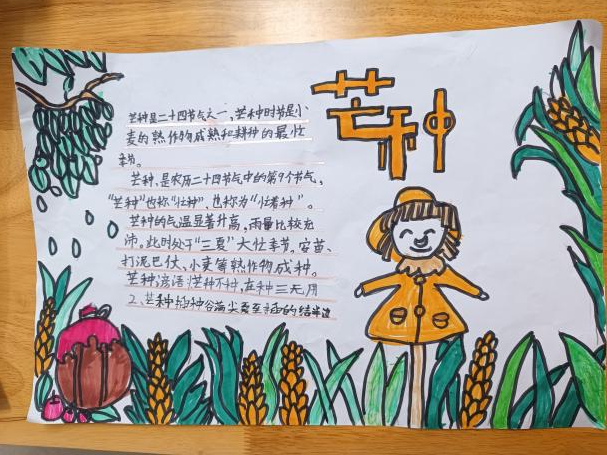 芒种
芒种是二十四节气之一,芒种时节是小
麦的熟作物成熟和耕种的最忙
季节。
芒种,是农历二十四节气中的第9个节气,
"芒种"也称"忙种",也称为"忙着种"。
芒种的气温显著升高,雨量比较充
沛。此时处于"三夏"大忙季节。安苗、
打泥巴仗、小麦等熟作物成种。
芒种谚语:芒种不种,在种三无用
2、芒种插秧谷满尖夏至插的结半边